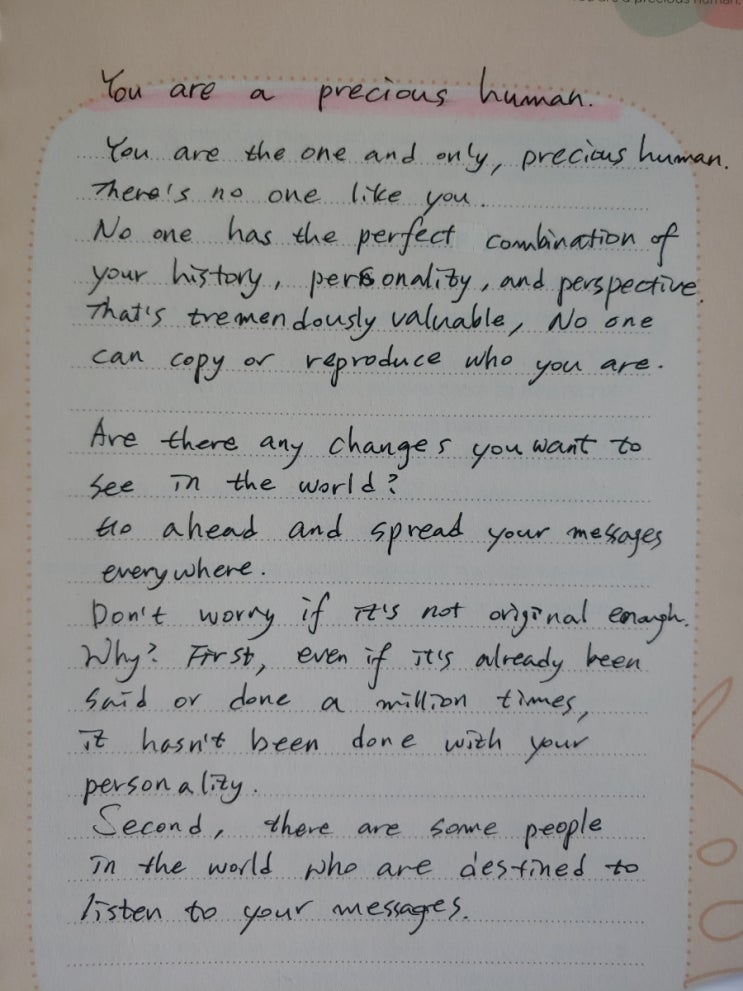 You are a precious human.
You are a precious human.
You are the one and only, precious human.
There's no one like you.
No one has the perfect combination of
your history, personality, and perspective.
That's tremendously valuable, No one
can copy or reproduce who you are.
Are there any changes you want to
see in the world?
Go ahead and spread your messages
everywhere.
Don't worry if it's not original enough.
Why? First, even if it's already been
said or done a million times,
it hasn't been done with your
personality.
Second, there are some people
in the world who are destined to
listen to your messages.